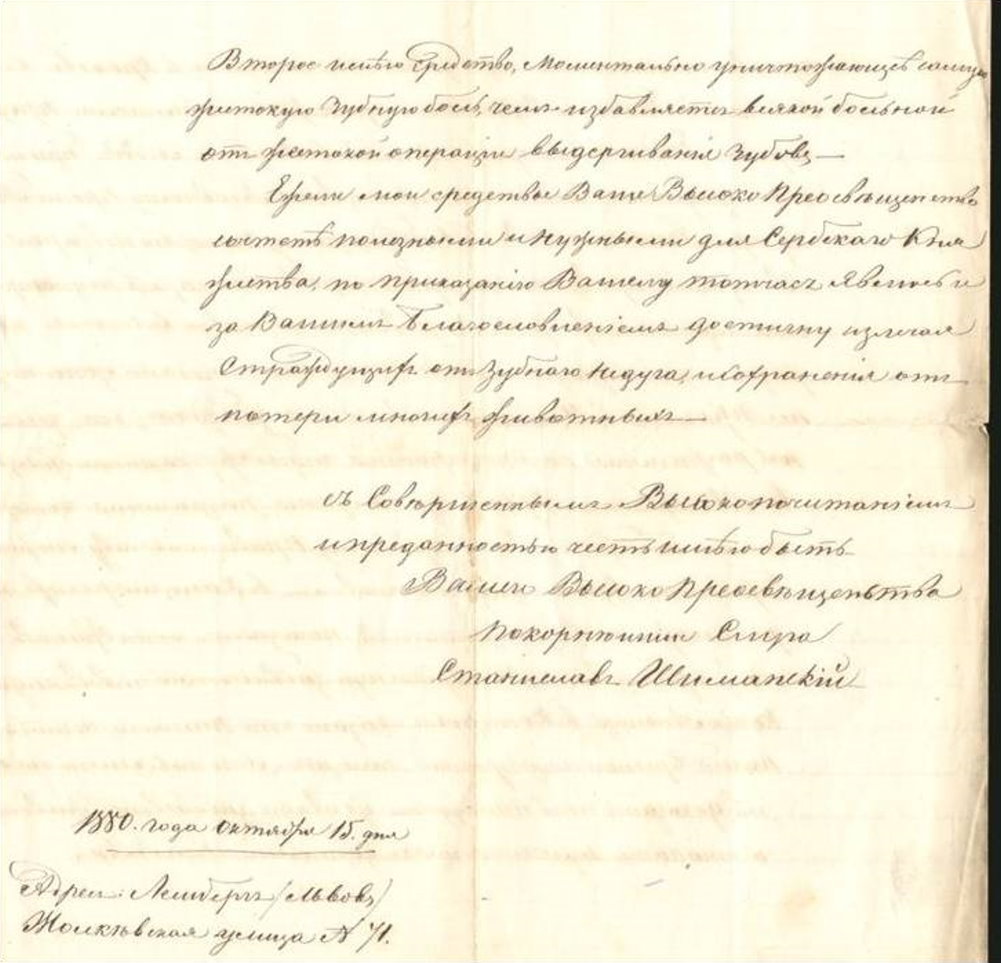 Второе имѣю средство, моментально уничтожающеѣ самую
жестокую зубную боль, чемъ избавляется всякой больной
отъ жестокой операціи выдергиванія зубовъ —
Ежели мои средства Ваше ВысокоПреосвященство
сочтетъ полезными и нужными для Сербскаго Кня
жества, по приказанію Вашему тотчасъ явлюсь и
за Вашимъ Благословленіемъ достигну излечая
страждущихъ отъ зубнаго недуга, и сохраненія отъ
потери многихъ животныхъ —
съ Совершеннымъ Высокопочитаніемъ
и преданностью честь имѣю быть
Вашего ВысокоПреосвященства
покорнѣйший Слуга
Станиславъ Шиманскій
1880. года октября 15. дня
Адресъ: Лембергъ (Львовъ)
Жолкѣвская улица № 71.